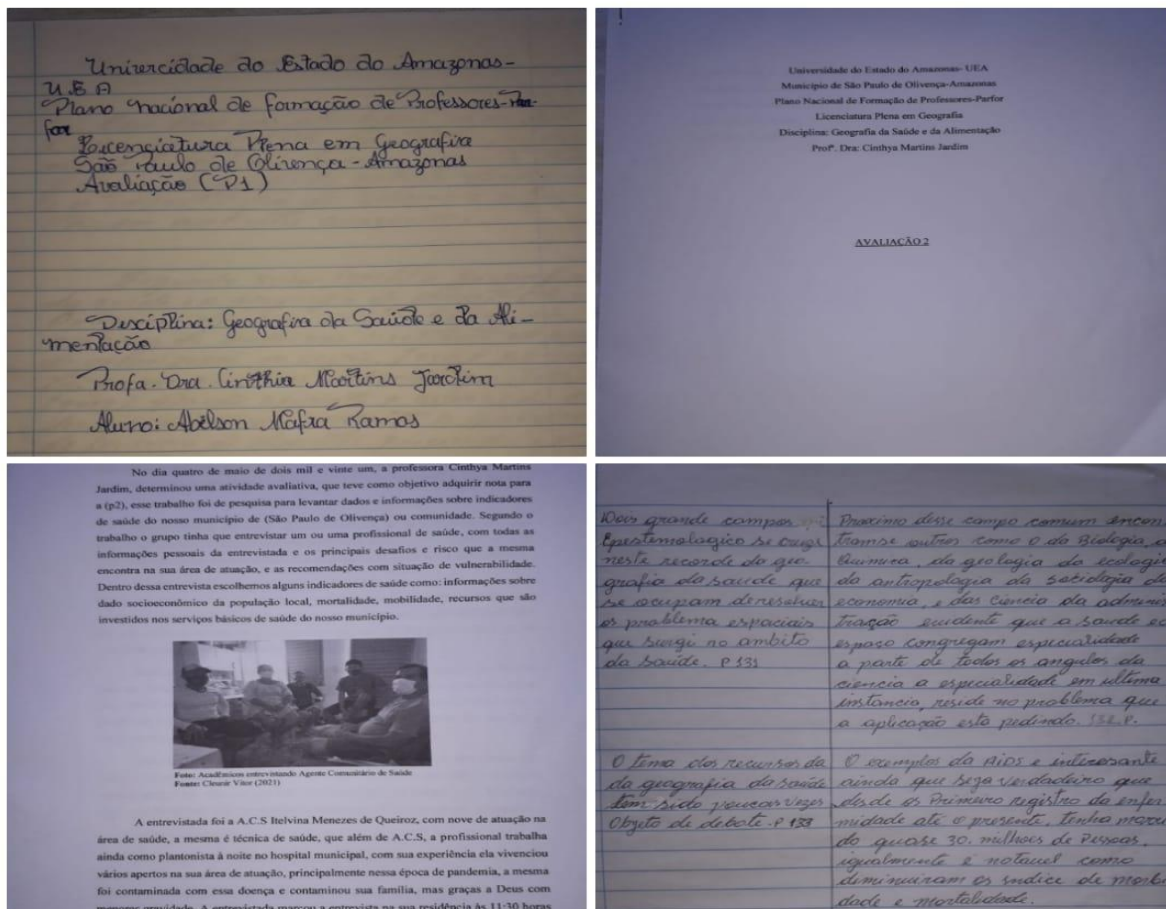 Univercidade do Estado do Amazonas-
U.E.A
Plano nacional de formação de Professores-Par-
for
Licenciatura Plena em Geografia
São Paulo de Olivença-Amazonas
Avaliação (P1)
Desciplina: Geografia da Saúde e da Ali-
mentação
Profa. Dra. Cinthia Martins Jardim
Aluno: Abelson Mafra Ramos
Universidade do Estado do Amazonas- UEA
Município de São Paulo de Olivença-Amazonas
Plano Nacional de Formação de Professores-Parfor
Licenciatura Plena em Geografia
Disciplina: Geografia da Saúde e da Alimentação
Profª. Dra: Cinthya Martins Jardim
AVALIAÇÃO 2
No dia quatro de maio de dois mil e vinte um, a professora Cinthya Martins
Jardim, determinou uma atividade avaliativa, que teve como objetivo adquirir nota para
a (p2), esse trabalho foi de pesquisa para levantar dados e informações sobre indicadores
de saúde do nosso município de (São Paulo de Olivença) ou comunidade. Segundo o
trabalho o grupo tinha que entrevistar um ou uma profissional de saúde, com todas as
informações pessoais da entrevistada e os principais desafios e risco que a mesma
encontra na sua área de atuação, e as recomendações com situação de vulnerabilidade.
Dentro dessa entrevista escolhemos alguns indicadores de saúde como: informações sobre
dado socioeconômico da população local, mortalidade, mobilidade, recursos que são
investidos nos serviços básicos de saúde do nosso município.
Foto: Acadêmicos entrevistando Agente Comunitário de Saúde
Fonte: Cleunir Vitor (2021)
A entrevistada foi a A.C.S Itelvina Menezes de Queiroz, com nove de atuação na
área de saúde, a mesma é técnica de saúde, que além de A.C.S, a profissional trabalha
ainda como plantonista à noite no hospital municipal, com sua experiência ela vivenciou
vários apertos na sua área de atuação, principalmente nessa época de pandemia, a mesma
foi contaminada com essa doença e contaminou sua família, mas graças a Deus com
menores gravidade. A entrevistada marcou a entrevista na sua residência às 11:30 horas
Dois grande campos
Epestemologico se
neste recorde da geo
grafia da saude que
se ocupam de resolver
os problema espaciais
que surgi no ambito
da saúde. P 131
O tema dos recursos da
da geografia da saúde
tem sido poucas vezes
Objeto de debate. P 133
Proximo desse campo comum encon
tramse outros como o da Biologia, a
Quimica, da geologia da ecologia
da antropologia da sociologia da
economia, e das ciencia da adminis
tração evidente que a saude e o
espaço congregam especialidade
a parte de todos os angulos da
ciencia a especialidade em ultima
instancia, reside no problema que
a aplicação esta pedindo. P.
O exemplos da AIDS e interessante
ainda que seja verdadeiro que
desde os Primeiro registro da enfer
midade até o presente, tenha morri
do quase 30. milhoes de Pessoas,
igualmente e notavel como
diminuiram os indice de morbi
dade e mortalidade.